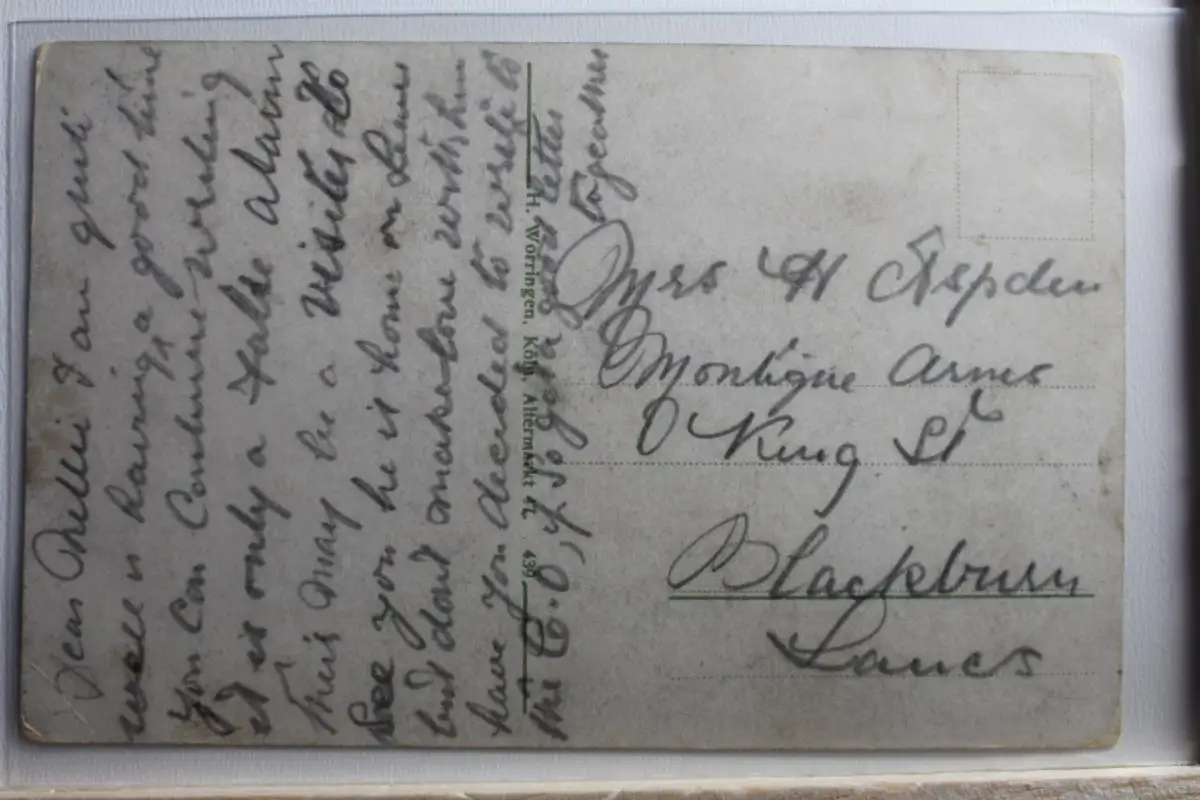 Dear Nellie I am quite
well & having a good time
you can Continue working
it is only a False alarm
There may be a visiter to
see you he is home on Leave
but dont make love with him
have you decided to write to
the C.O, if so get a good letter
together
H. Worringen, Köln, Altermarkt 41. 439
Mrs H Aspden
Montigue Arms
King St
Blackburn
Lancs